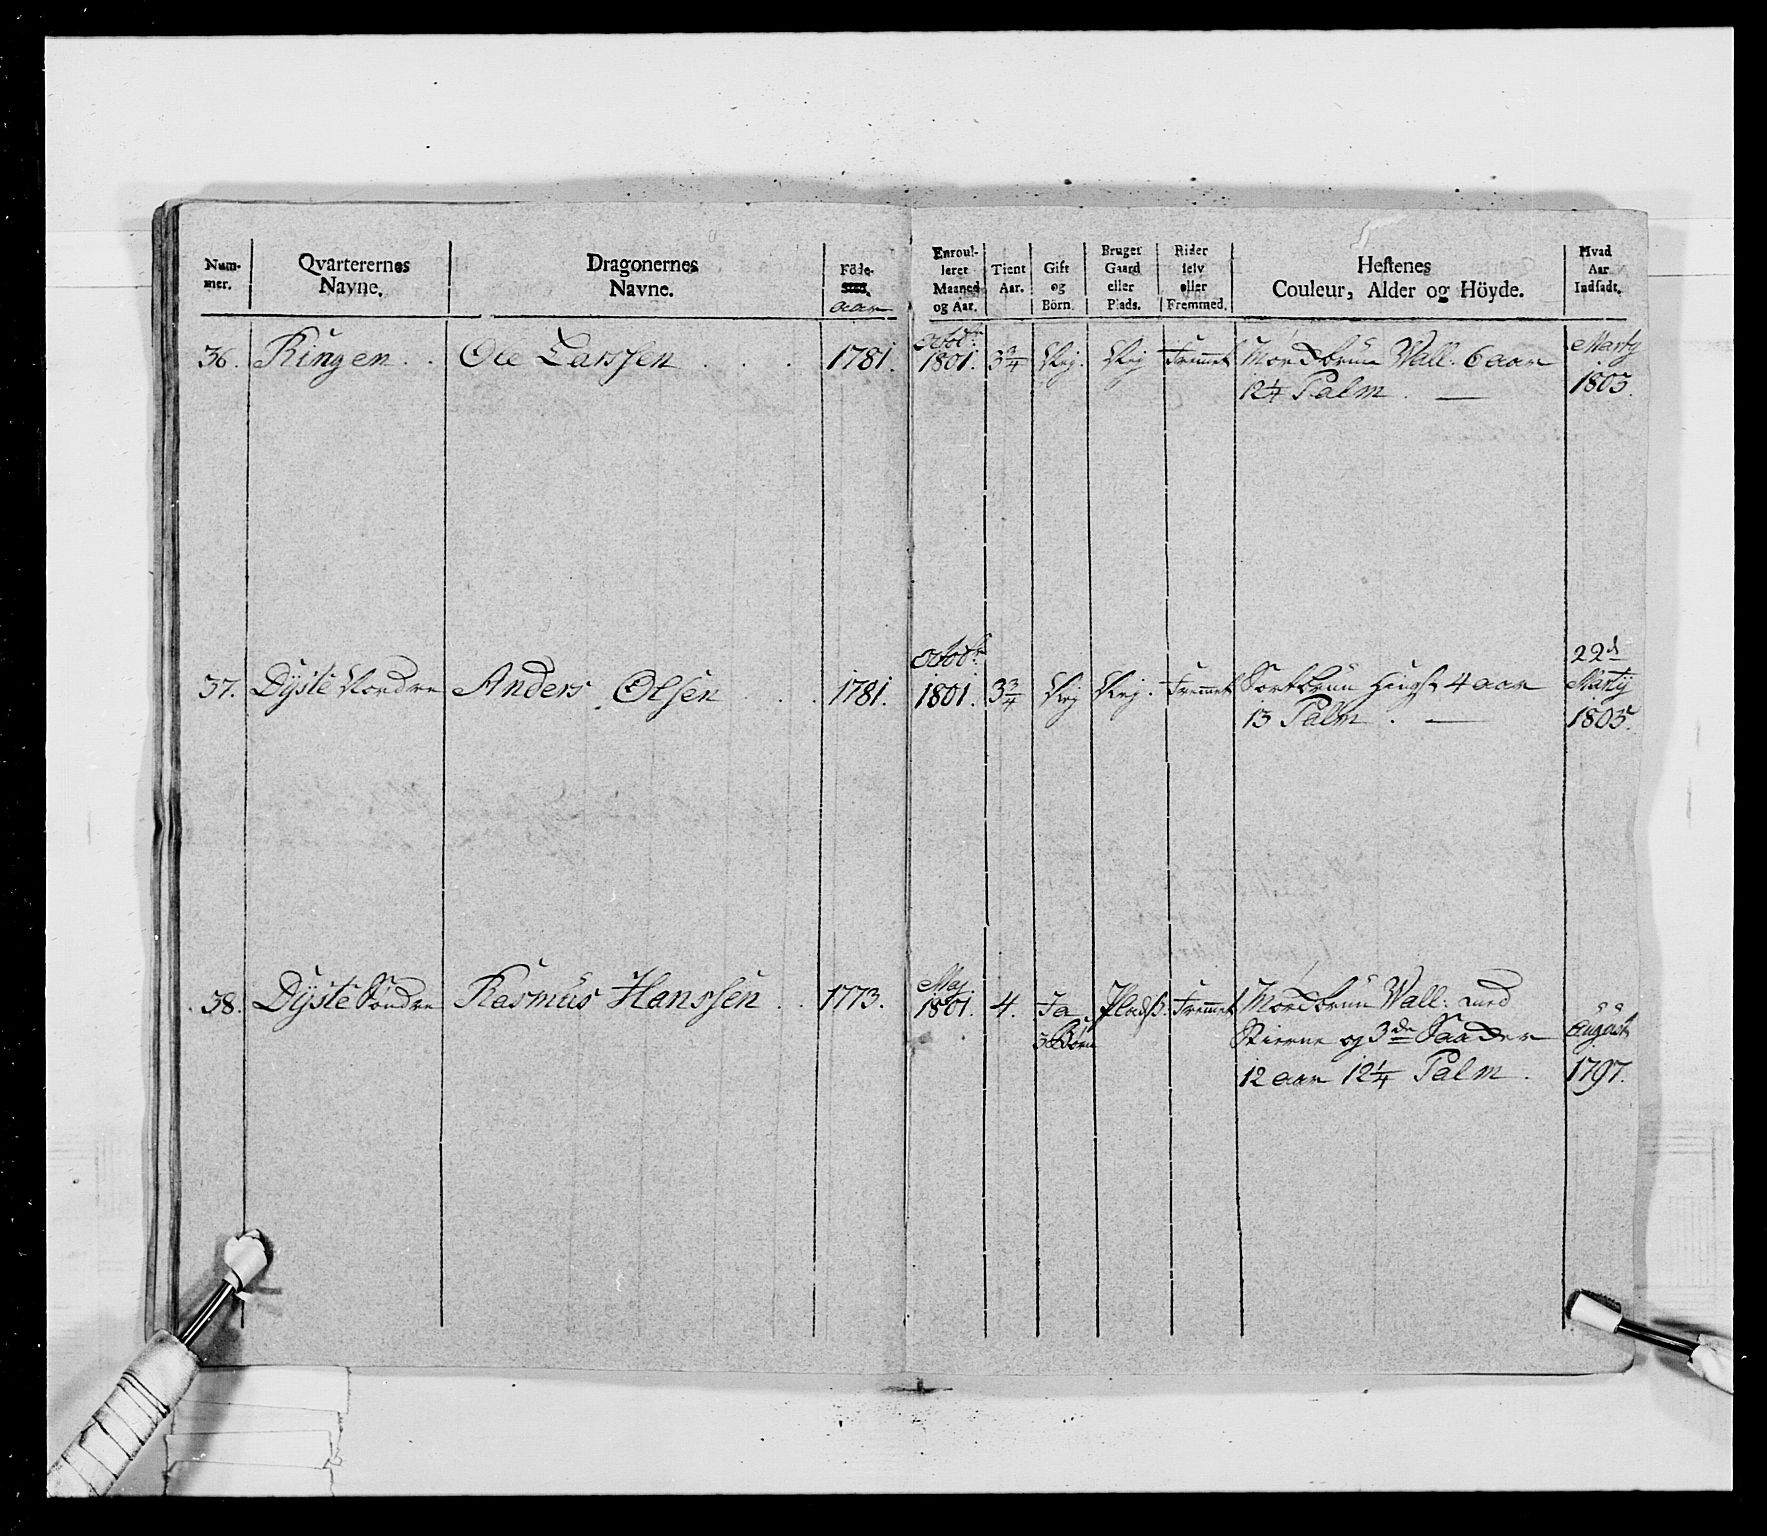 Num-
mer.
Qvarterernes
Navne.
Dragonernes
Navne.
Föde-
aar
Enroul-
leret
Maaned
og Aar.
Tient
Aar.
Gift
og
Börn.
Bruger
Gaard
eller
Plads.
Rider
selv
eller
Fremmed.
Hestenes
Couleur, Alder og Höyde.
Hvad
Aar
Indsadt.
36. Ringen Ole Larssen 1781. Octobr: 1801. 3 3/4 Nej. Nej Fremmet Mordbrun Wall. 6 aar Marty
12 1/4 Palm. — 1803.
37. Dÿste Nordre Anders Olsen 1781. Octobr: 1801. 3 3/4 Nej Nej. Fremmet Sortbrun Hingst 4 aar 22de Martÿ
13 Palm. — 1805.
38. Dÿste Söndre Rasmus Hanssen 1773. Maj 1801. 4. Ja Pladß. Fremmet Mordbrun Wall. med
3 Börn Stierne og 3de Saader August
12 aar 12 1/4 Palm. 1797.